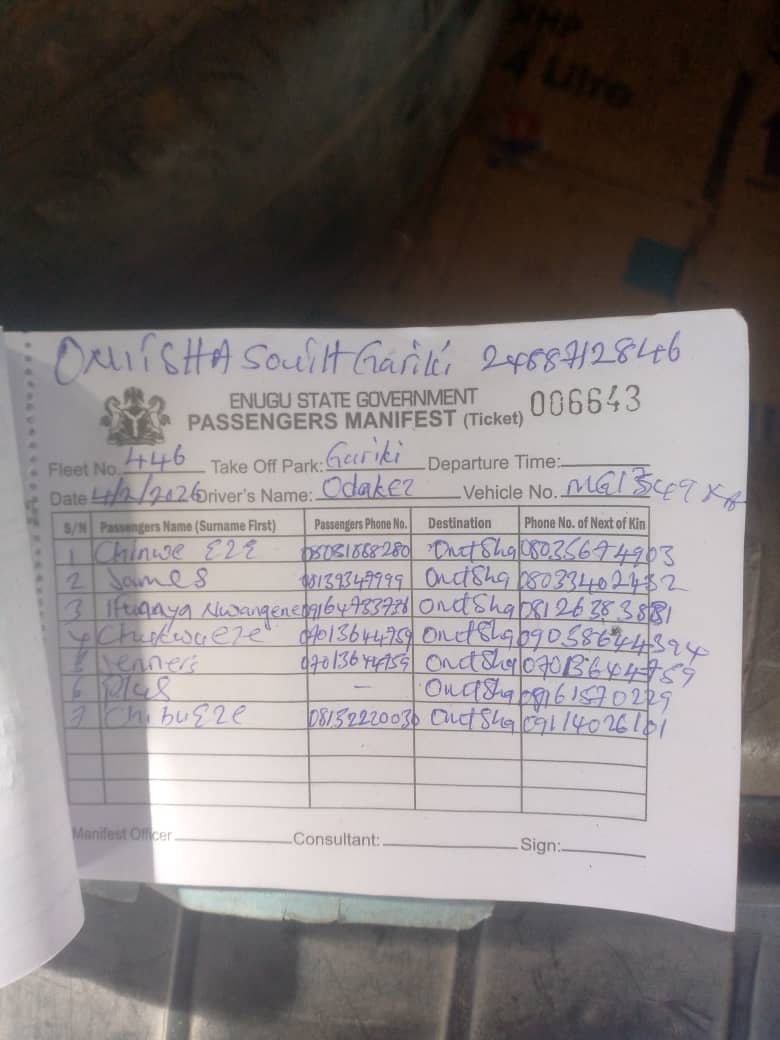 ONIISHA South Gariki 2488712846
ENUGU STATE GOVERNMENT
PASSENGERS MANIFEST (Ticket) 006643
Fleet No. 446 Take Off Park: Gariki Departure Time:
Date 4/2/2026 Driver's Name: Odakez Vehicle No.
S/N Passengers Name (Surname First) Passengers Phone No. Destination Phone No. of Next of Kin
1 Chinwe EZE 08031668280 Onctsha 08035674903
2 James 08139347999 Onctsha 08033402432
3 Ifunanya Nwangene 09164733736 Onctsha 08126383881
4 Chukwueze 07013644759 Onctsha 09038644394
5 Jenners 07013644759 Onctsha 07013644759
6 Pius — Onctsha 08161570229
7 ChibuEze 08132220030 Onctsha 09114026101
Manifest Officer Consultant: Sign:
4 Litre